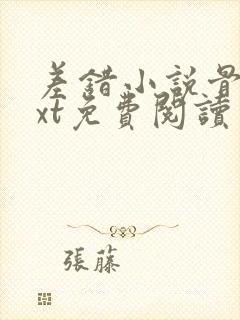 差錯小說量
xt免費閱讀
張藤